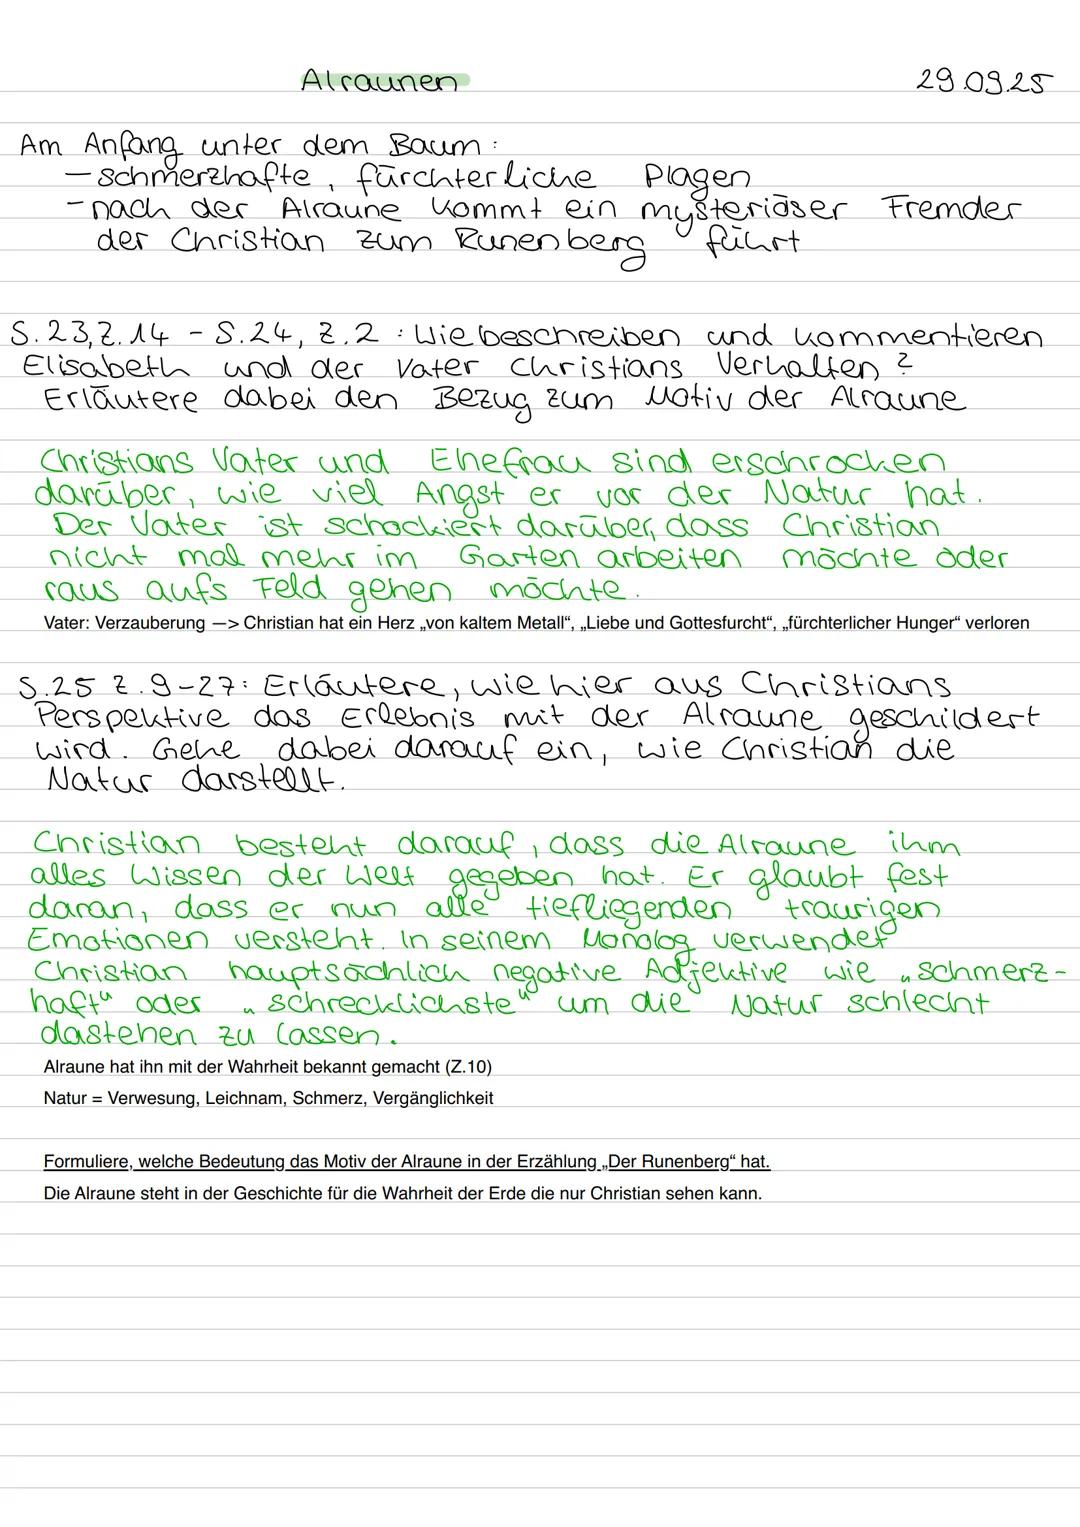 Alraunen
29.09.25
Am Anfang unter dem Baum:
- schmerzhafte, fürchterliche Plagen
- nach der Alraune kommt ein mysteriöser Fremder
der Christian zum Runenberg führt
S.23, Z.14 - S.24, Z.2: Wie beschreiben und kommentieren
Elisabeth und der Vater Christians Verhalten?
Erläutere dabei den Bezug zum Motiv der Alraune
Christians Vater und Ehefrau sind erschrocken
darüber, wie viel Angst er vor der Natur hat.
Der Vater ist schockiert darüber, dass Christian
nicht mal mehr im Garten arbeiten möchte oder
raus aufs Feld gehen möchte.
Vater: Verzauberung —> Christian hat ein Herz „von kaltem Metall“, „Liebe und Gottesfurcht“, „fürchterlicher Hunger“ verloren
S.25 Z.9-27: Erläutere, wie hier aus Christians
Perspektive das Erlebnis mit der Alraune geschildert
wird. Gehe dabei darauf ein, wie Christian die
Natur darstellt.
Christian besteht darauf, dass die Alraune ihm
alles Wissen der Welt gegeben hat. Er glaubt fest
daran, dass er nun alle tiefliegenden traurigen
Emotionen versteht. In seinem Monolog verwendet
Christian hauptsächlich negative Adjektive wie „schmerz-
haft“ oder „schrecklichste“ um die Natur schlecht
dastehen zu lassen.
Alraune hat ihn mit der Wahrheit bekannt gemacht (Z.10)
Natur = Verwesung, Leichnam, Schmerz, Vergänglichkeit
Formuliere, welche Bedeutung das Motiv der Alraune in der Erzählung „Der Runenberg“ hat.
Die Alraune steht in der Geschichte für die Wahrheit der Erde die nur Christian sehen kann.